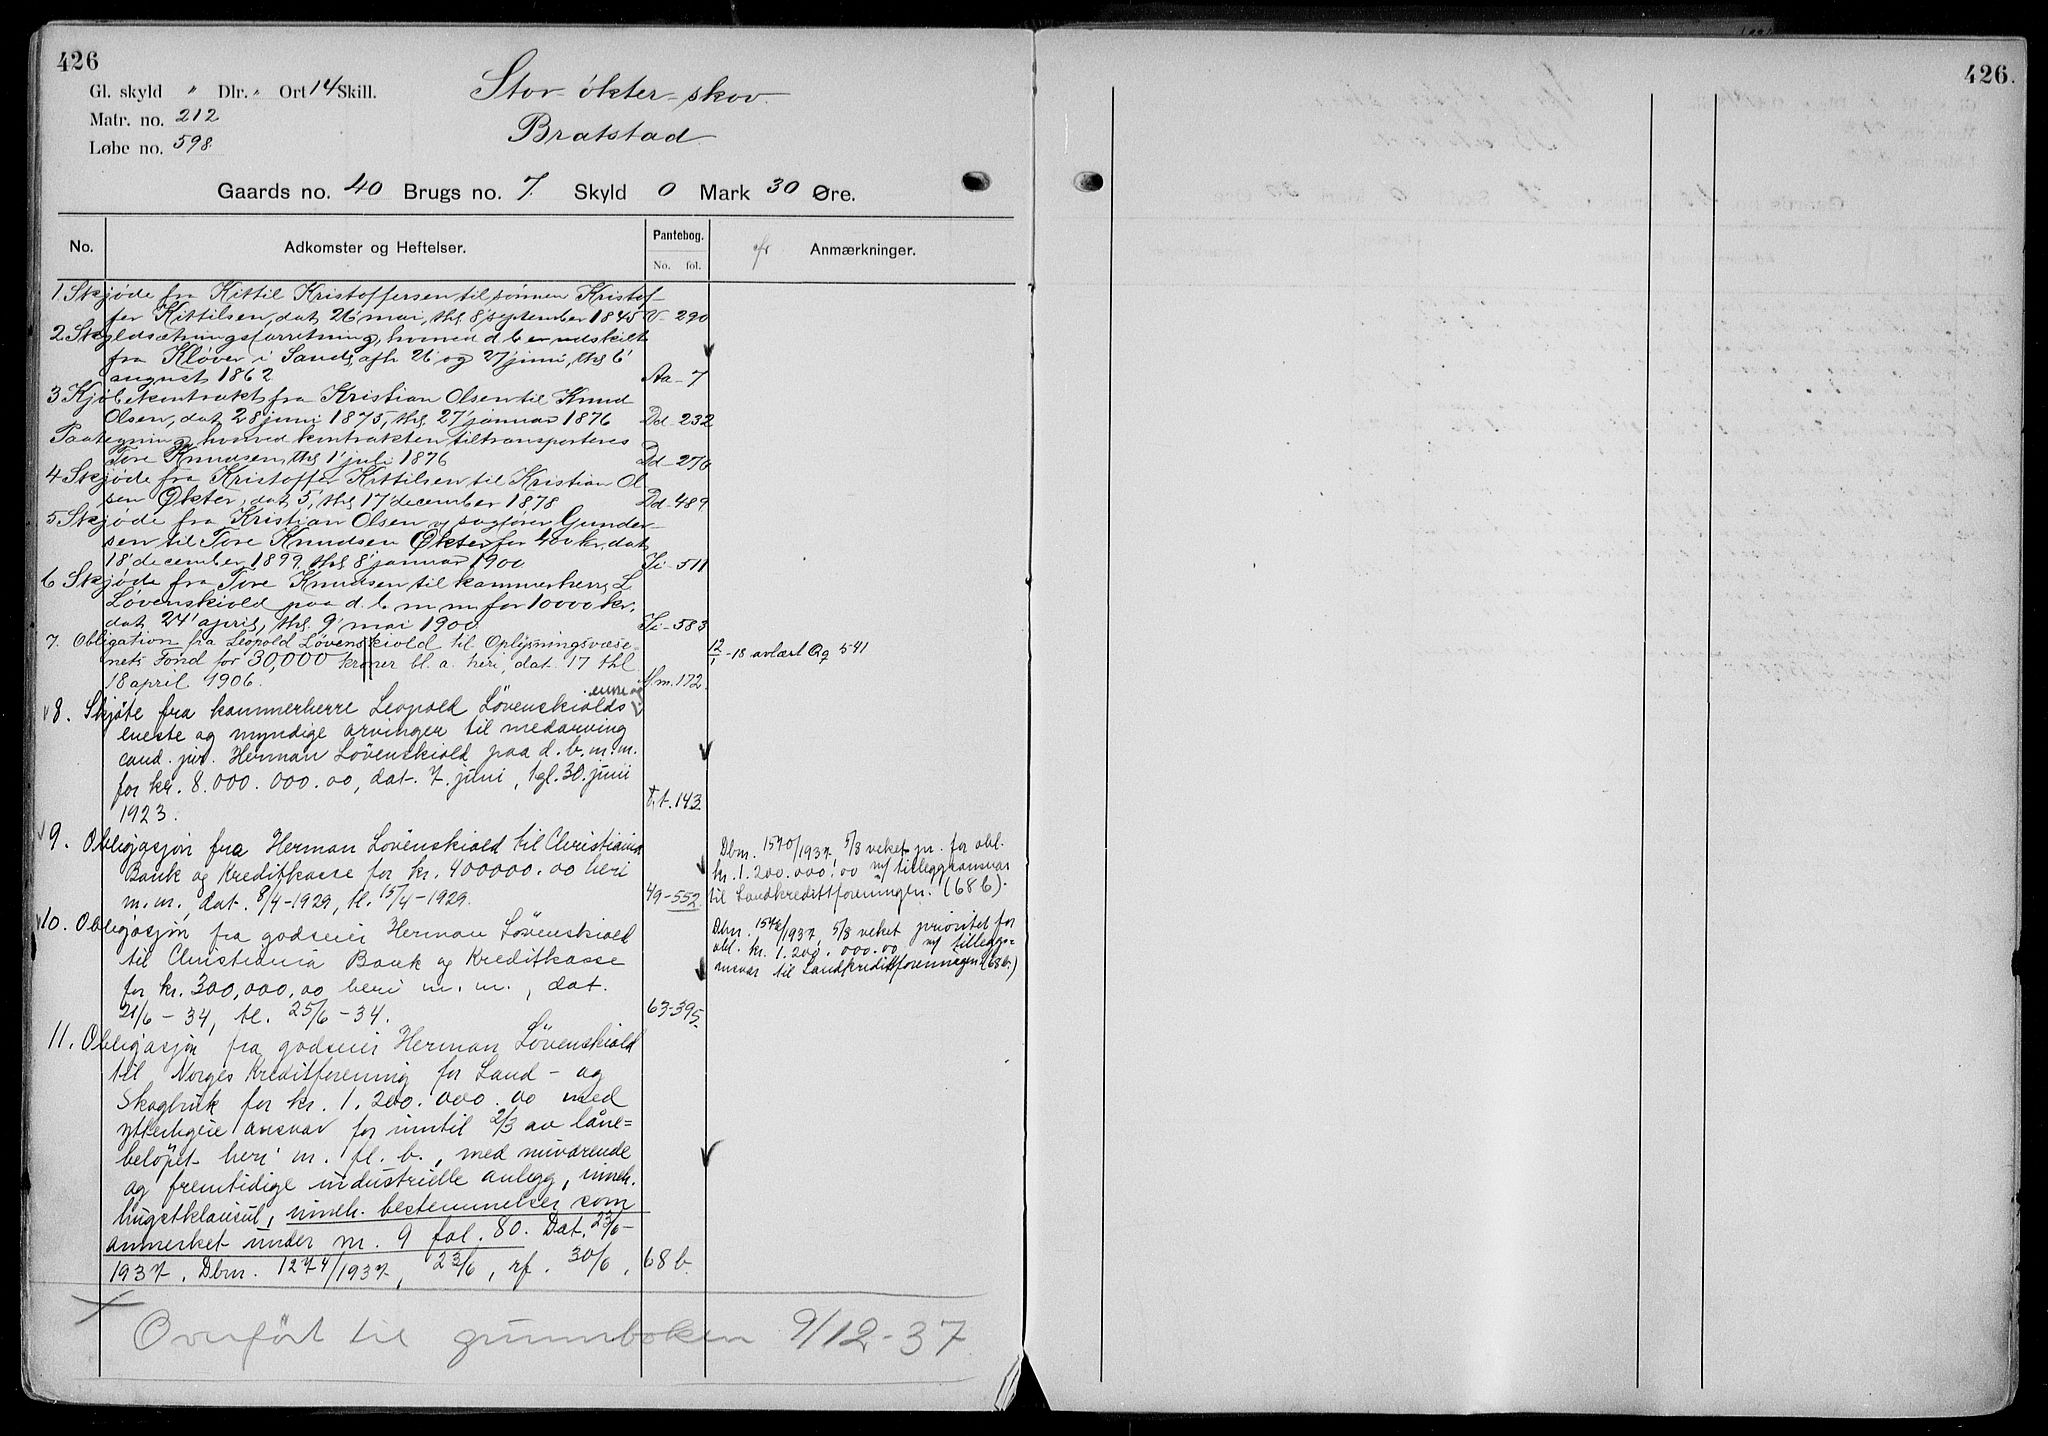 426
426.
Gl. skyld " Dlr. " Ort 14 Skill.
Matr. no. 212
Løbe no. 598.
Stor-økter-skov.
Bratstad
Gaards no. 40 Brugs no. 7. Skyld 0 Mark 30 Øre.
No. Adkomster og Heftelser. Pantebog. No. fol. Anmærkninger.
1 Skjøde fra Kittil Kristoffersen til sønnen Kristof-
fer Kittilsen, dat 26' mai, thl 8' september 1845 V-290
2 Skyldsætningsforretning, hvorved d b er udskilt
fra Kløver i Sand, afh 26' og 27' juni, thl 6'
august 1862 Aa-7
3 Kjøbekontrakt fra Kristian Olsen til Knud
Olsen, dat 28 juni 1875, thl 27' januar 1876 Dd-232
Paategning, hvorved kontrakten tiltransporteres
Tore Knudsen, thl 1' juli 1876 Dd-270
4 Skjøde fra Kristoffer Kittilsen til Kristian Ol
sen Økter, dat 5', thl 17' december 1878 Dd-489
5 Skjøde fra Kristian Olsen og sagfører Gunder-
sen til Tore Knudsen Økter for 400 kr, dat
18' december 1899, thl 8' januar 1900 Ii-511
6 Skjøde fra Tore Knudsen til kammerherre L
Løvenskiold paa d. b m m for 10000 kr,
dat 24' april, thl 9' mai 1900 Ii-583
7. Obligation fra Leopold Løvenskiold til Oplysningsvæse-
nets Fond for 30,000 kroner bl. a. heri, dat. 17 thl
18 april 1906. M.m. 172.
12/1-18 avlæst Qq 541
8. Skjøte fra kammerherre Leopold Løvenskiolds enke og
eneste og myndige arvinger til medarving
cand. jur. Herman Løvenskiold paa d. b. m. m.
for kr. 8.000.000.00, dat. 7. juni, tgl. 30. juni
1923. T.t. 143.
9. Obligasjon fra Herman Løvenskiold til Christiania
Bank og Kreditkasse for kr. 400000.00 heri
m.m., dat. 8/4-1929, tl. 15/4-1929. 49-552.
Dbnr. 1540/1937, 5/8 veket pr. for obl.
kr. 1.200.000.00 m/ tilleggsansvar
til Landkredittforeningen. (68b).
10. Obligasjon fra godseier Herman Løvenskiold
til Christiania Bank og Kreditkasse
for kr. 300,000,00 heri m. m., dat.
21/6-34, tl. 25/6-34. 63-395.
Dbnr. 1542/1937, 5/8 veket prioritet for
obl. kr. 1.200.000.00 m/ tilleggs-
ansvar til Landkredittforeningen (68b.)
11. Obligasjon fra godseier Herman Løvenskiold
til Norges Kreditforening for Land- og
Skogbruk for kr. 1.200.000.00 med
ytterligere ansvar for inntil 2/3 av låne=
beløpet heri m. fl. b., med nuværende
og fremtidige industrielle anlegg, inneh.
hugstklausul, inneh. bestemmelser som
anmerket under nr. 9 fol. 80. Dat. 23/6-
1937. Dbnr. 1274/1937, 23/6, rf. 30/6. 68b.
Overført til grunnboken 9/12-37